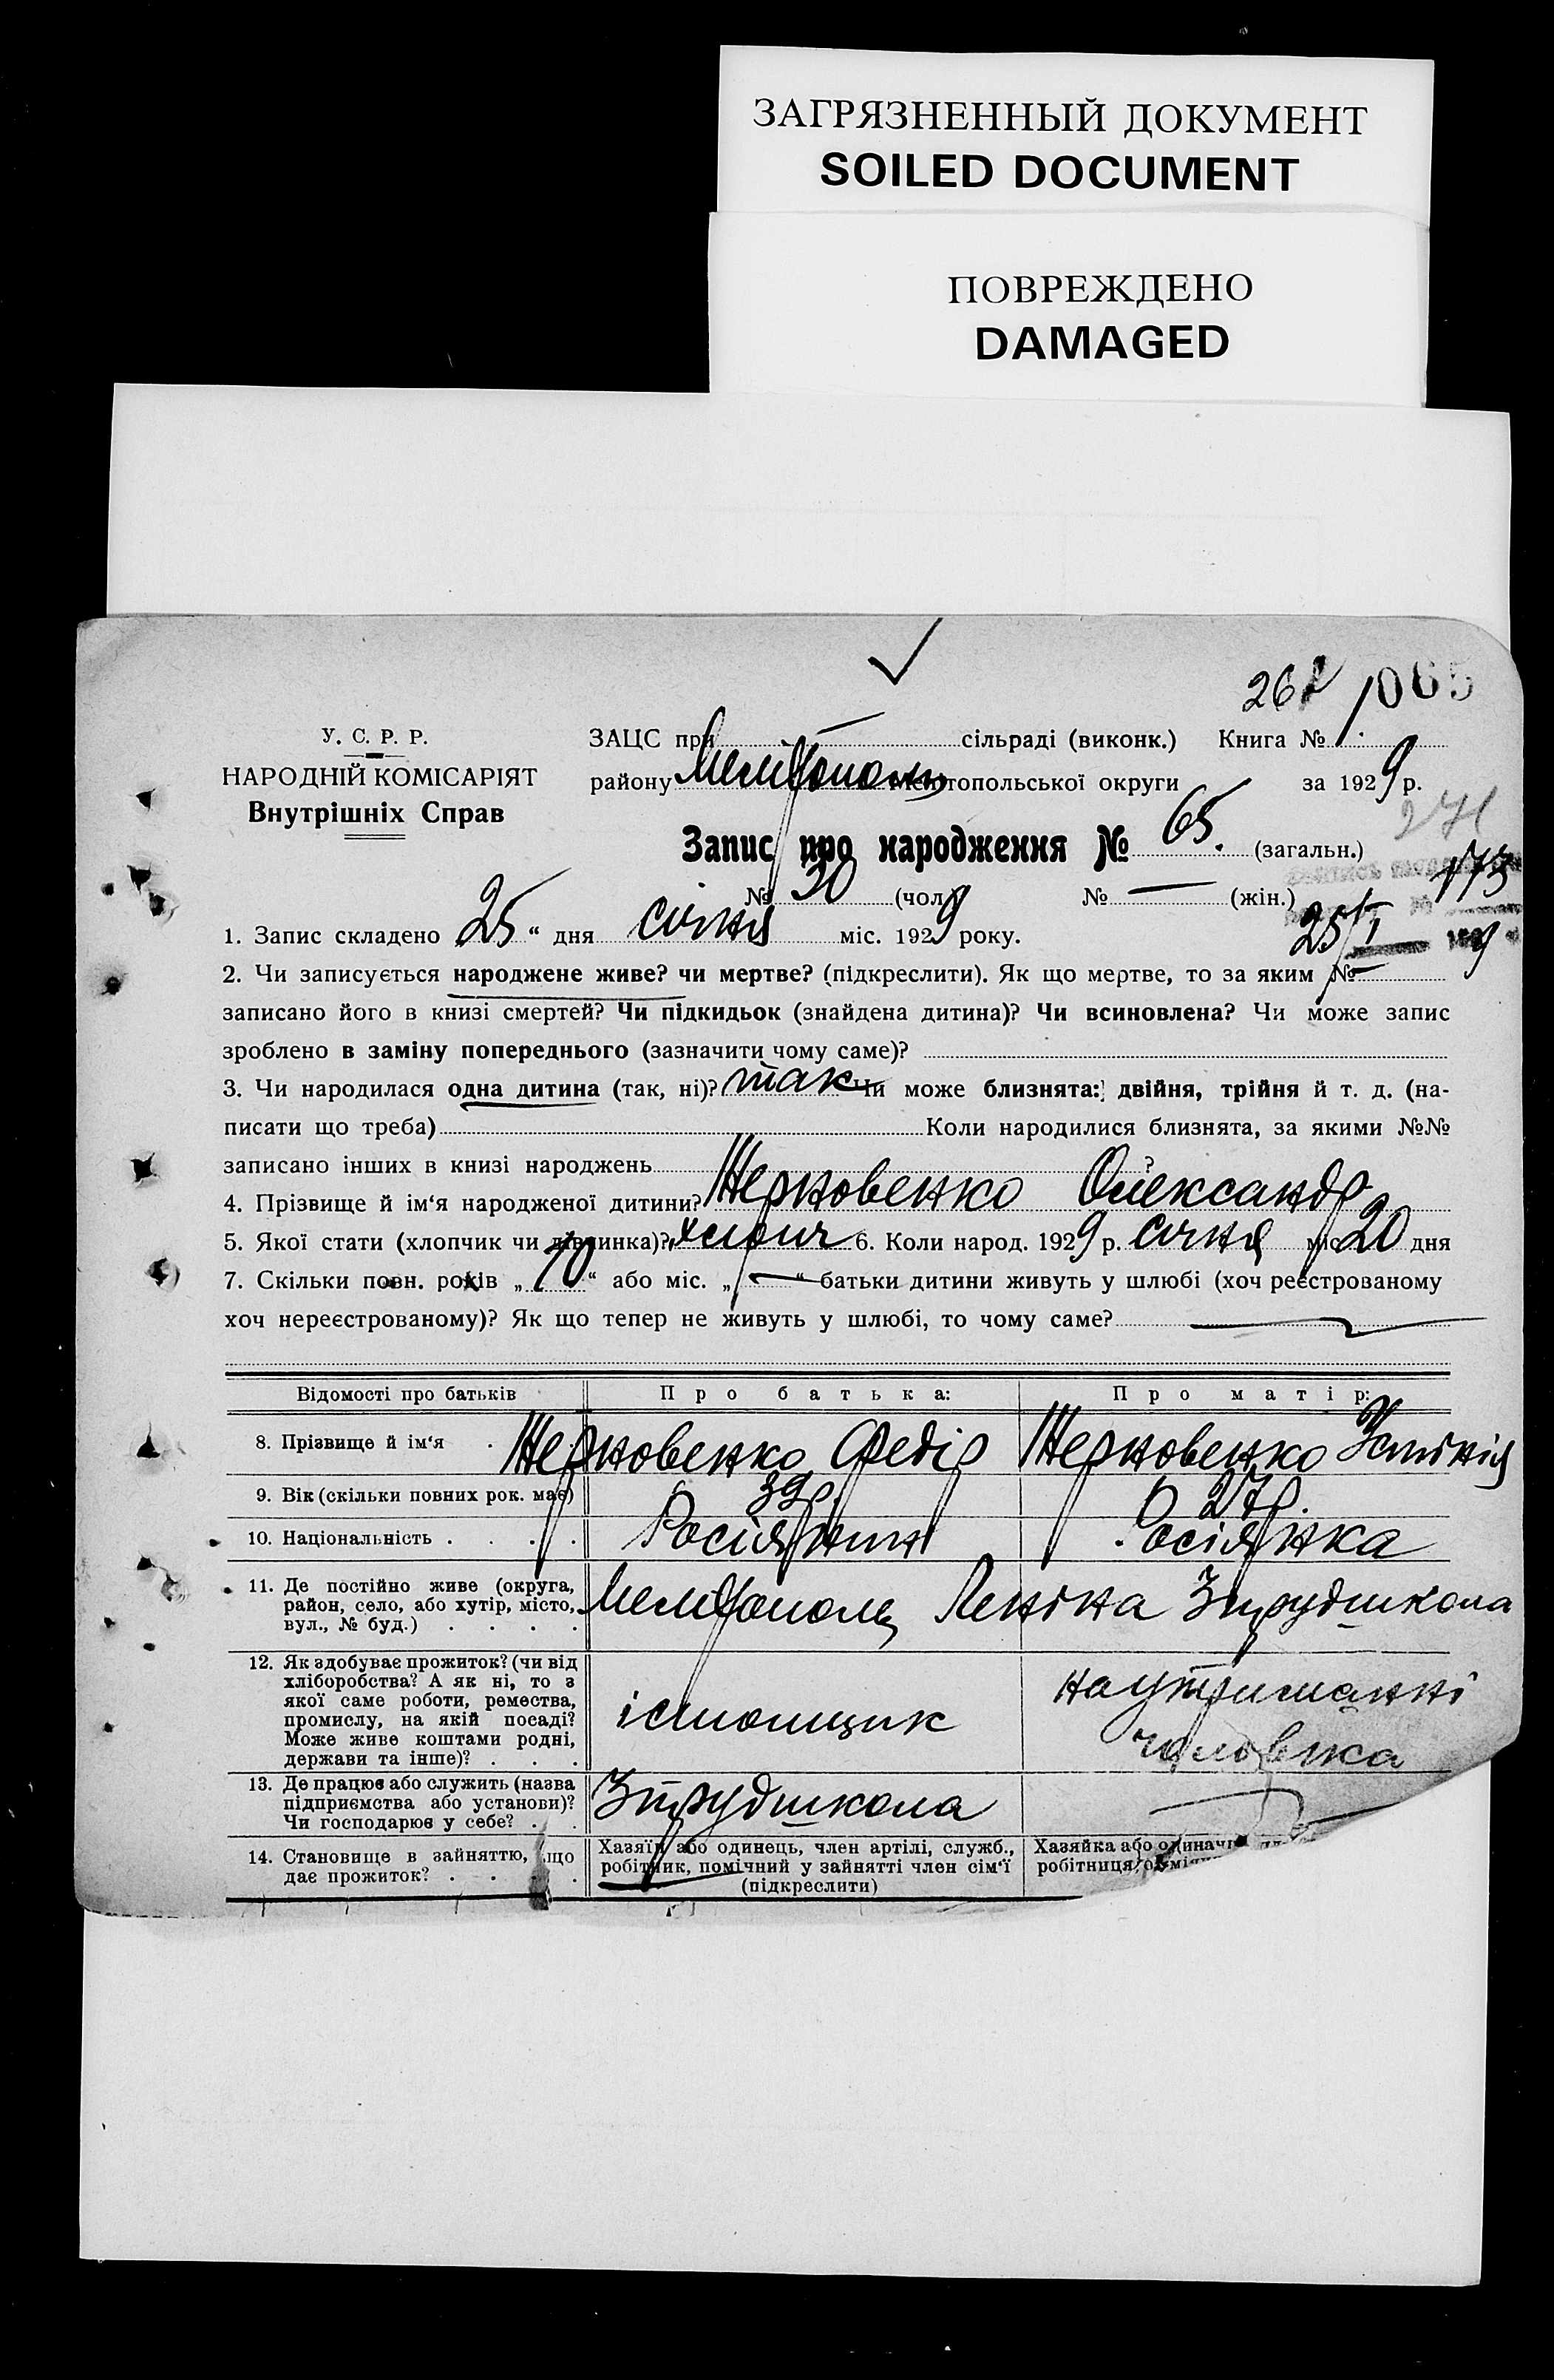 ЗАГРЯЗНЕННЫЙ ДОКУМЕНТ
SOILED DOCUMENT
ПОВРЕЖДЕНО
DAMAGED
065
У. С. Р. Р.
НАРОДНІЙ КОМІСАРІЯТ
Внутрішніх Справ
ЗАЦС при — сільраді (виконк.) Книга № 1.
району Мелітополь Мелітопольської округи за 1929 р.
Запис про народження № 65. (загальн.)
№ 30 (чол.) № — (жін.)
173
25/I 9
1. Запис складено 25 “ дня січня міс. 1929 року.
2. Чи записується народжене живе? чи мертве? (підкреслити). Як що мертве, то за яким № —
записано його в книзі смертей? Чи підкидьок (знайдена дитина)? Чи всиновлена? Чи може запис
зроблено в заміну попереднього (зазначити чому саме)?
3. Чи народилася одна дитина (так, ні)? так Чи може близнята: двійня, трійня й т. д. (на-
писати що треба) Коли народилися близнята, за якими №№
записано інших в книзі народжень ?
4. Прізвище й ім‘я народженої дитини? Жерновенко Олександр
5. Якої стати (хлопчик чи дівчинка)? хлопч 6. Коли народ. 1929 р. січня міс. 20 дня
7. Скільки повн. років „ 10 “ або міс. „ — “ батьки дитини живуть у шлюбі (хоч реєстрованому
хоч нереєстрованому)? Як що тепер не живуть у шлюбі, то чому саме? —
Відомості про батьків Про батька: Про матір:
8. Прізвище й ім‘я . Жерновенко Федір Жерновенко Устінія
9. Вік (скільки повних рок. має) 39р. 27р.
10. Національність . . . . Росіянин Росіянка
11. Де постійно живе (округа,
район, село, або хутір, місто,
вул., № буд.) . . . . Мелітополь Леніна 3 трудшкола
12. Як здобуває прожиток? (чи від
хліборобства? А як ні, то з
якої саме роботи, ремества,
промислу, на якій посаді?
Може живе коштами родні,
держави та інше)? . . .
істопщик
на утриманні
чоловіка
13. Де працює або служить (назва
підприємства або установи)?
Чи господарює у себе? . .
3 трудшкола
14. Становище в зайняттю, що
дає прожиток? . . . .
Хазяїн або одинець, член артілі, служб.,
робітник, помічний у зайнятті член сім‘ї
(підкреслити)
Хазяйка або одиначка
робітниця,